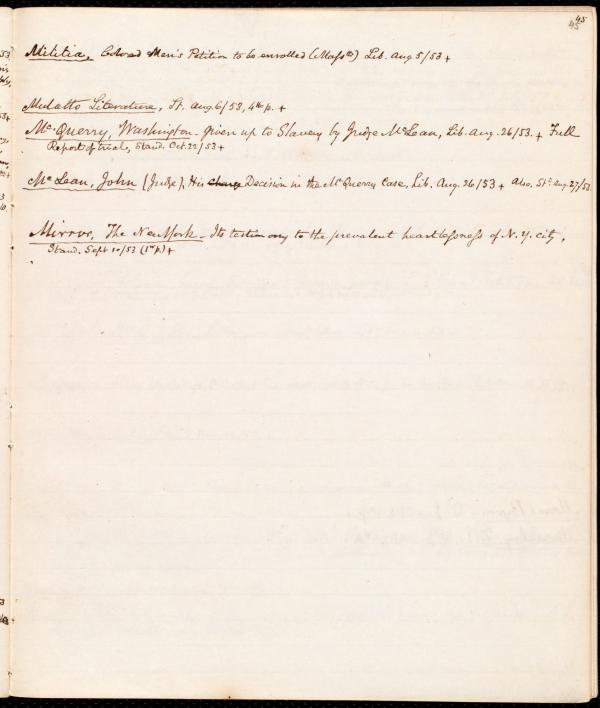 45
45
Militia, Colored Men's Petition to be enrolled (Mass tts) Lib. Aug 5/53 +
Mulatto Literature, St. Aug. 6/53, 4th p. +
Mc.Querry, Washington - given up to Slavery by Judge McLean, Lib. Aug. 26/53. + Full
Report of trial, Stand. Oct. 22/53 +
Mc Lean, John (Judge); His Charge Decision in the Mc Querry Case, Lib. Aug. 26/53 + Also. St. Aug. 27/53.
Mirror, The New York - Its testimony to the prevalent heartlessness of N.Y. City,
Stand. Sept 10/53 (1st p.) +